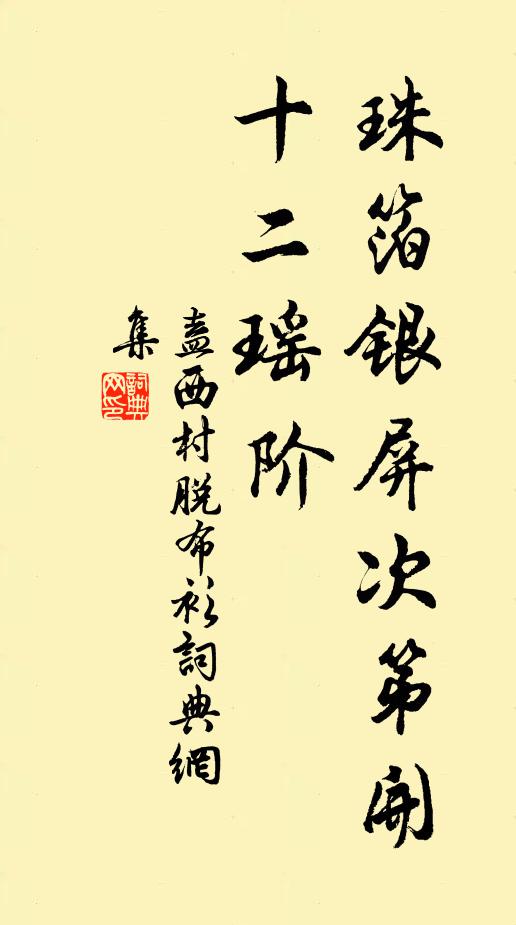 珠箔银屏次第開
十二瑶阶
盍西村脱布衫詞典網
集
詞典
网印